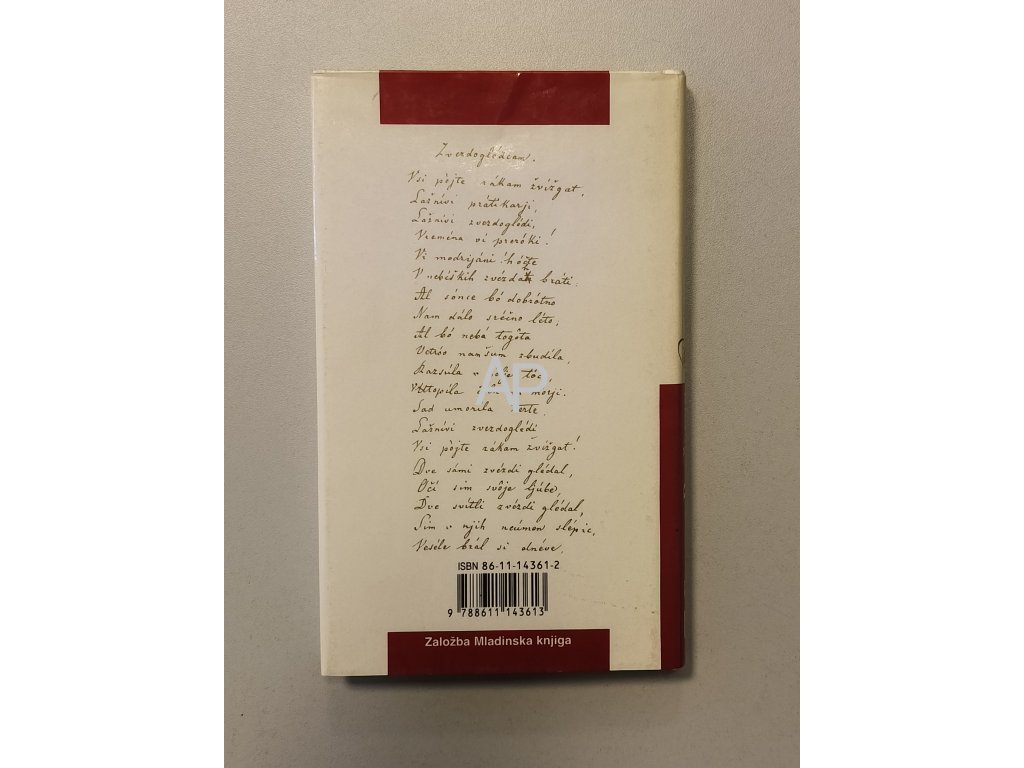 Zvezdoglédcam.
Vsi pojte rákam žvížgat,
Lažnívi prátikarji,
Lažnívi zvezdoglédi,
Vreména ví preróki!
Vi modrijáni hóćte
V nebéških zvézdah bráti:
Al sónce bó dobrótno
Nam dálo sréčno léto,
Al bó nebá togôta
Vetróv nam šum zbudíla,
Razsúla v tóč,
Vtopíla morji.
Sad umoríla terte.
Lažnívi zvezdoglédi
Vsi pojte rákam žvížgat!
Dve sámi zvézdi glédal,
Očí sim svôje ljúbe,
Dve svítli zvézdi glédal,
Sim v njih neúmen slépic,
Vesêle brál si dnéve,
ISBN 86-11-14361-2
9 788611 143613
Založba Mladinska knjiga
AP